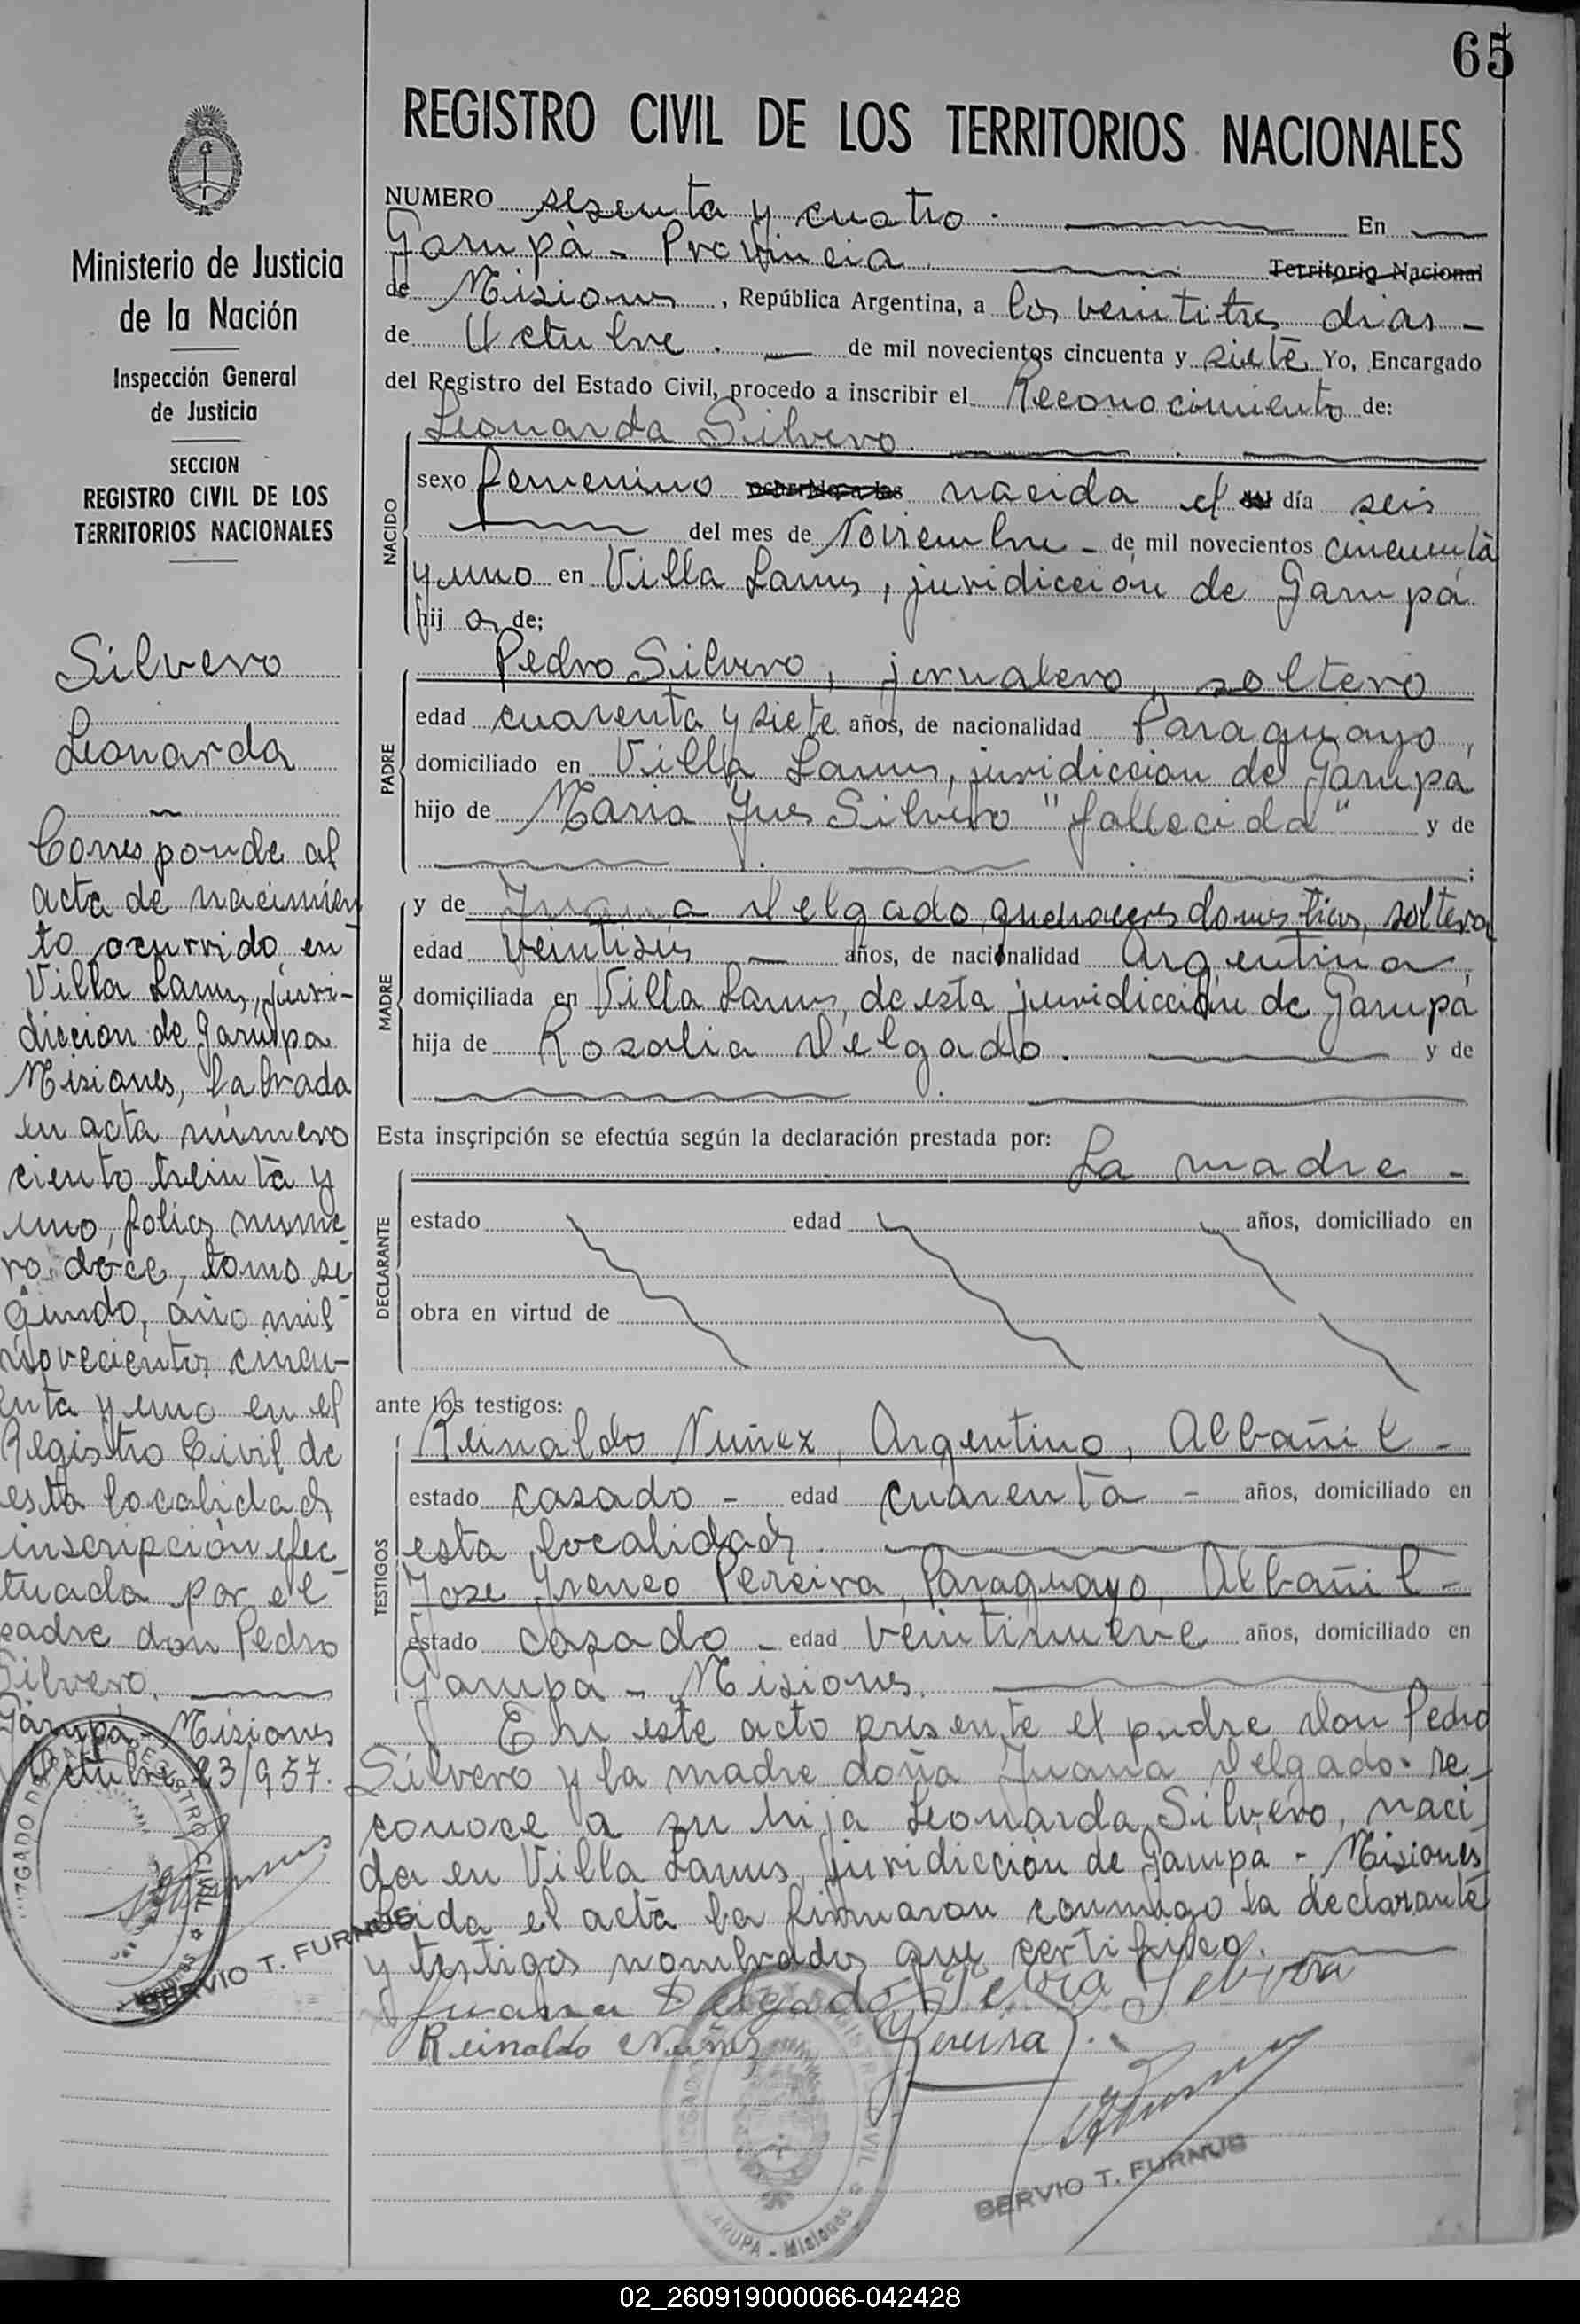 65
REGISTRO CIVIL DE LOS TERRITORIOS NACIONALES
Ministerio de Justicia
de la Nación
Inspección General
de Justicia
SECCION
REGISTRO CIVIL DE LOS
TERRITORIOS NACIONALES
Silvero
Leonarda
Corresponde al
acta de nacimien
to ocurrido en
Villa Lanus, juri-
diccion de Garupa
Misiones, labrada
en acta número
ciento treinta y
uno, folios nume
ro doce, tomo se
gundo, año mil
novecientos cincu-
enta y uno en el
Registro Civil de
esta localidad
inscripción efec
tuada por el
padre don Pedro
Silvero.
Garupá - Misiones
Octubre 23/957.
REGISTRO CIVIL
SERVIO T. FURNUS
NUMERO sesenta y cuatro. En
Garupá - Provincia Territorio Nacional
de Misiones, República Argentina, a los veintitres dias -
de Octubre. de mil novecientos cincuenta y siete Yo, Encargado
del Registro del Estado Civil, procedo a inscribir el Reconocimiento de:
Leonarda Silvero.
NACIDO
sexo femenino nacida el día seis
del mes de Noviembre - de mil novecientos cincuenta
y uno en Villa Lanus, juridicción de Garupá
hij a de;
PADRE
Pedro Silvero, jornalero, soltero
edad cuarenta y siete años, de nacionalidad Paraguayo,
domiciliado en Villa Lanus, juridiccion de Garupá
hijo de Maria Ynes Silvero "fallecida" y de
;
MADRE
y de Juana Delgado, quehaceres domesticos, soltera
edad veintiseis años, de nacionalidad Argentina
domiciliada en Villa Lanus, de esta juridicción de Garupá
hija de Rosalia Delgado. y de
Esta inscripción se efectúa según la declaración prestada por:
La madre -
DECLARANTE
estado edad años, domiciliado en
obra en virtud de
ante los testigos:
TESTIGOS
Reinaldo Nuñez, Argentino, Albañil -
estado casado - edad cuarenta - años, domiciliado en
esta localidad.
Jose Ireneo Pereira, Paraguayo, Albañil -
estado casado - edad veintinueve años, domiciliado en
Garupá - Misiones.
En este acto presente el padre don Pedro
Silvero y la madre doña Juana Delgado. re-
conoce a su hija Leonarda Silvero, naci
da en Villa Lanus, juridicción de Garupá - Misiones
leida el acta la firmaron conmigo la declarante
y testigos nombrados que certifico.
Juana Delgado Pedro Silvero
Reinaldo Nuñez Pereira
GARUPA - Misiones
SERVIO T. FURNUS
02_260919000066-042428